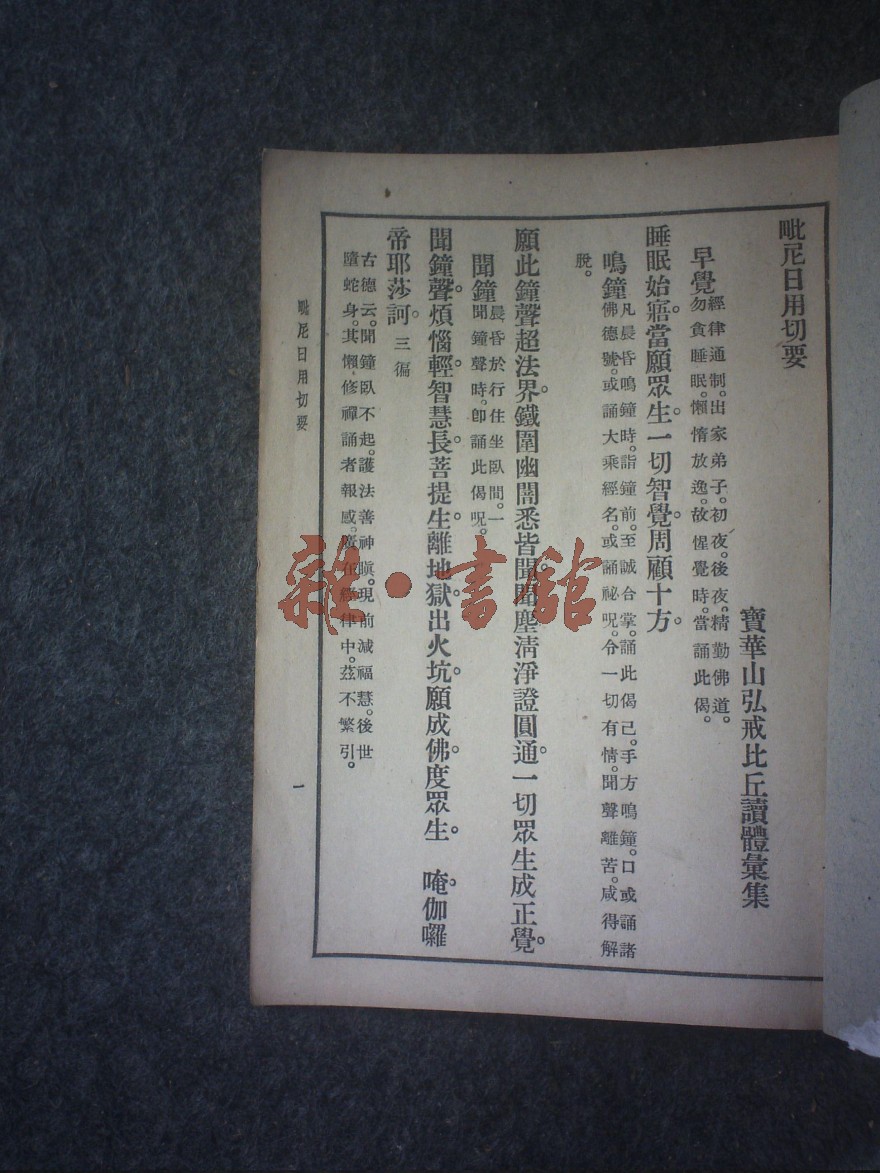 毗尼日用切要
寶華山弘戒比丘讀體彙集
早覺
經律通制。出家弟子。初夜。後夜。精勤佛道。
勿貪睡眠。懶惰放逸。故惺覺時。當誦此偈。
睡眠始寤。當願眾生。一切智覺。周顧十方。
鳴鐘
凡晨昏鳴鐘時。詣鐘前。至誠合掌。誦此偈已。手方鳴鐘。口或誦諸
佛德號。或誦大乘經名。或誦祕呪。令一切有情。聞聲離苦。咸得解
脫。
願此鐘聲超法界。鐵圍幽闇悉皆聞。聞塵清淨證圓通。一切眾生成正覺。
聞鐘
晨昏於行住坐臥間。一
聞鐘聲時。卽誦此偈呪。
聞鐘聲。煩惱輕。智慧長。菩提生。離地獄。出火坑。願成佛。度眾生。 唵。伽囉
帝耶莎訶。三徧
古德云。聞鐘臥不起。護法善神瞋。現前減福慧。後世
墮蛇身。其懶修禪誦者報感。律中。茲不繁引。
毗尼日用切要
一
雜·書館